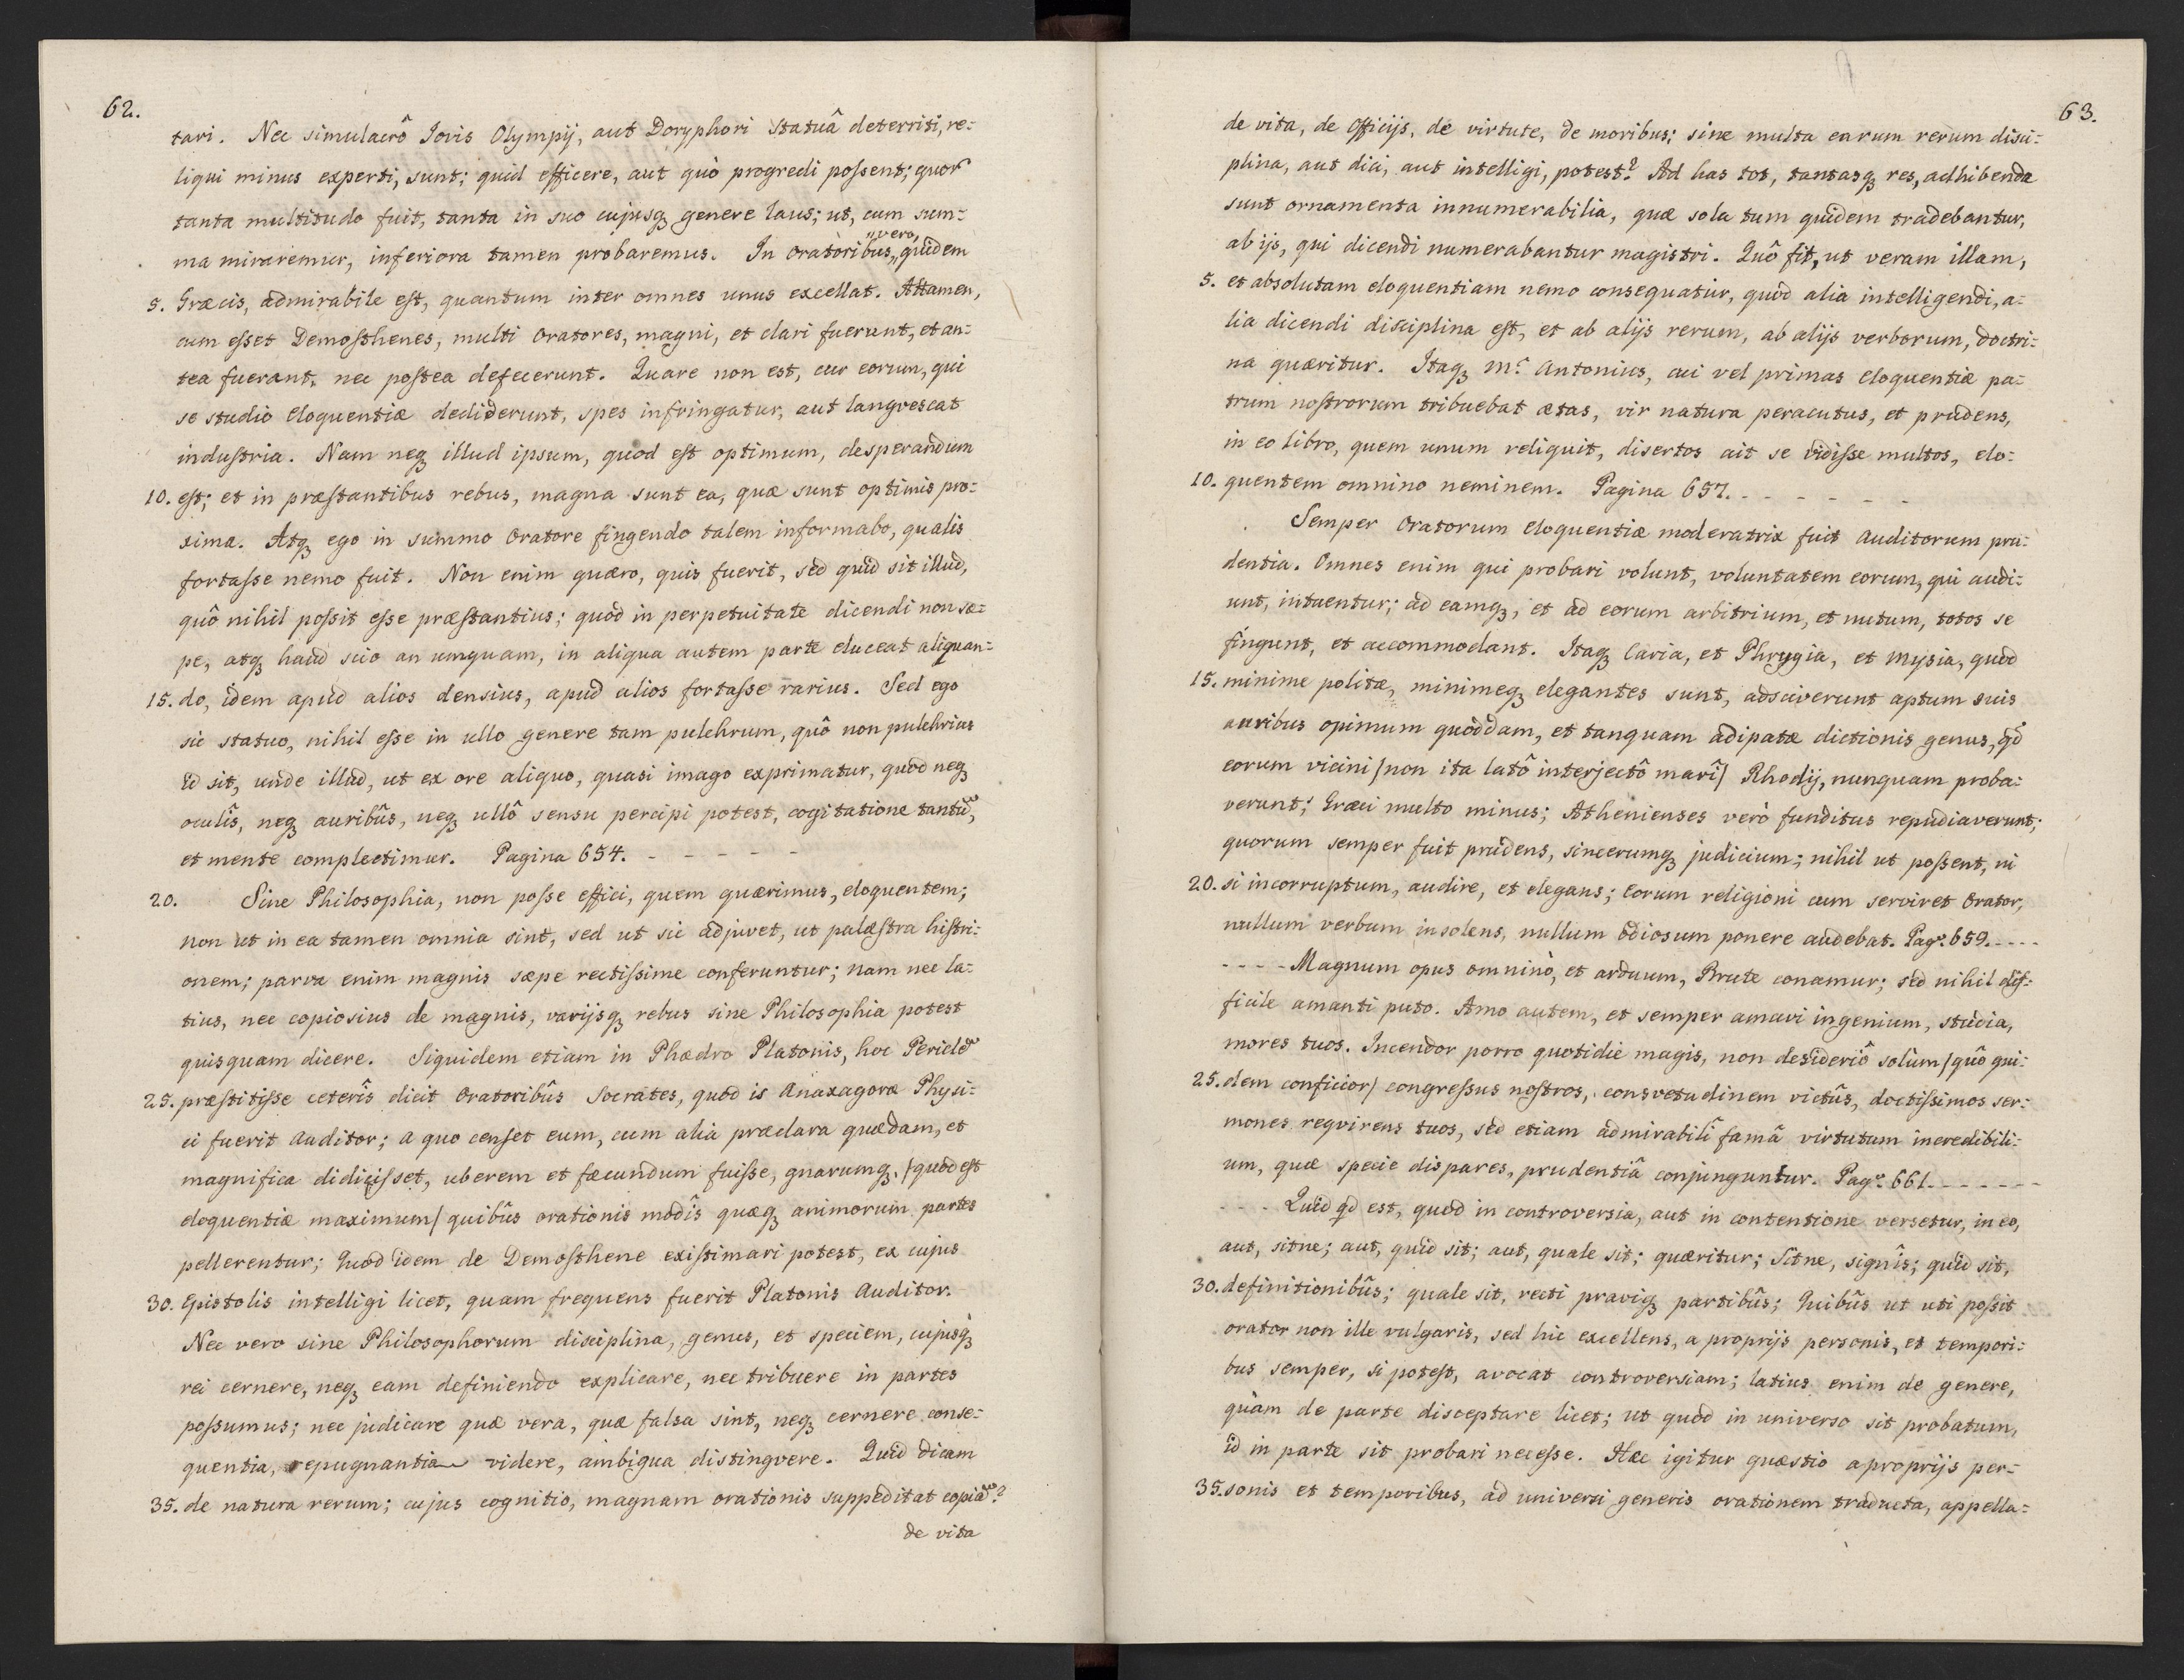 62.
tari. Nec simulacrô Jovis Olympij, aut Doryphori statuâ deterriti, re=
liqui minus experti, sunt; quid efficere, aut quò progredi possent; quor
tanta multitudo fuit, tanta in suo cujusq₃ genere laus; ut, cum sum=
ma miraremur, inferiora tamen probaremus. In oratoribus „vero, „quidem
5. Græcis, admirabile est, quantum inter omnes unus excellat. Attamen,
cum esset Demosthenes, multi oratores, magni, et clari fuerunt, et an=
tea fuerant, nec postea defecerunt. Quare non est, cur eorum, qui
se studio eloquentiæ dediderunt, spes infringatur, aut langvescat
industria. Nam neq₃ illud ipsum, quod est optimum, desperandum
10. est; et in præstantibus rebus, magna sunt ea, quæ sunt optimis pro=
xima. Atq₃ ego in summo Oratore fingendo talem informabo, qualis
fortasse nemo fuit. Non enim quæro, quis fuerit, sed quid sit illud,
quô nihil possit esse præstantius; quod in perpetuitate dicendi non sæ=
pe, atq₃ haud scio an umquam, in aliqua autem parte eluceat aliquan=
15. do, idem apud alios densius, apud alios fortasse rarius. Sed ego
sic statuo, nihil esse in ullo genere tam pulchrum, quô non pulchrius
id sit, unde illud, ut ex ore aliquo, quasi imago exprimatur, quod neq₃
oculîs, neq₃ auribûs, neq₃ ullô sensu percipi potest, cogitatione tantũ,
et mente complectimur. Pagina 654. - - - - -
20. Sine Philosophia, non posse effici, quem quærimus, eloquentem;
non ut in ea tamen omnia sint, sed ut sic adjuvet, ut palæstra histri=
onem; parva enim magnis sæpe rectissime conferuntur; nam nec la=
tius, nec copiosius de magnis, varijsq₃ rebus sine Philosophia potest
quisquam dicere. Siquidem etiam in Phædro Platonis, hoc Periclẽ
25. præstitisse ceterîs dicit Oratoribûs Socrates, quod is Anaxagoræ Physi=
ci fuerit Auditor; a quo censet eum, cum alia præclara quædam, et
magnifica didicisset, uberem et fæcundum fuisse, gnarumq₃, /quod est
eloquentiæ maximum/ quibûs orationis modîs quæq₃ animorum partes
pellerentur; Quod idem de Demosthene existimari potest, ex cujus
30. Epistolis intelligi licet, quam frequens fuerit Platonis Auditor.
Nec vero sine Philosophorum disciplina, genus, et speciem, cujusq₃
rei cernere, neq₃ eam definiendo explicare, nec tribuere in partes
possumus; nec judicare quæ vera, quæ falsa sint, neq₃ cernere conse=
quentia, repugnantia videre, ambigua distingvere. Quid dicam
35. de natura rerum; cujus cognitio, magnam orationis suppeditat copiã?
de vita
63.
de vita, de Officijs, de virtute, de moribus; sine multa earum rerum disci=
plina, aut dici, aut intelligi, potest? Ad has tot, tantasq₃ res, adhibenda
sunt ornamenta innumerabilia, quæ sola tum quidem tradebantur,
ab ijs, qui dicendi numerabantur magistri. Quô fit, ut veram illam,
5. et absolutam eloquentiam nemo consequatur, quod alia intelligendi, a=
lia dicendi disciplina est, et ab alijs rerum, ab alijs verborum, doctri=
na quæritur. Itaq₃ M. Antonius, cui vel primas eloquentiæ pa=
trum nostrorum tribuebat ætas, vir natura peracutus, et prudens,
in eo libro, quem unum reliquit, disertos ait se vidisse multos, elo=
10. quentem omnino neminem. Pagina 657. - - - - - -
Semper Oratorum eloquentiæ moderatrix fuit Auditorum pru=
dentia. Omnes enim qui probari volunt, voluntatem eorum, qui audi=
unt, intuentur; ad eamq₃, et ad eorum arbitrium, et nutum, totos se
fingunt, et accommodant. Itaq₃ Caria, et Phrygia, et Mysia, quod
15. minime politæ, minimeq₃ elegantes sunt, adsciverunt aptum suis
auribus opimum quoddam, et tanquam adipatæ dictionis genus, qd
eorum vicini /non ita latô interjectô marî/ Rhodij, nunquam proba=
verunt; Græci multo minus; Athenienses verò funditus repudiaverunt;
quorum semper fuit prudens, sincerumq₃ judicium; nihil ut possent, ni
20. si incorruptum, audire, et elegans; Eorum religioni cum serviret Orator,
nullum verbum insolens, nullum odiosum ponere audebat. Pag. 659. - - - -
- - - - Magnum opus omninò, et arduum, Brute conamur; sed nihil dif=
ficile amanti puto. Amo autem, et semper amavi ingenium, studia,
mores tuos. Incendor porro quotidie magis, non desideriô solûm /quô qui=
25. dem conficior/ congressus nostros, consvetudinem victûs, doctissimos ser=
mones reqvirens tuos, sed etiam admirabili famâ virtutum incredibili=
um, quæ specie dispares, prudentiâ conjunguntur. Pag. 661. - - - - - -
- - - Quid qd est, quod in controversia, aut in contentione versetur, in eo,
aut, sitne; aut, quid sit; aut, quale sit; quæritur; Sitne, signîs; quid sit,
30. definitionibûs; quale sit, recti praviq₃ partibûs; Quibûs ut uti possit
orator non ille vulgaris, sed hic excellens, a proprijs personis, et tempori=
bus semper, si potest, avocat controversiam; latius enim de genere,
quàm de parte disceptare licet; ut quod in universo sit probatum,
id in parte sit probari necesse. Hæc igitur quæstio a proprijs per=
35. sonis et temporibus, ad universi generis orationem traducta, appella=